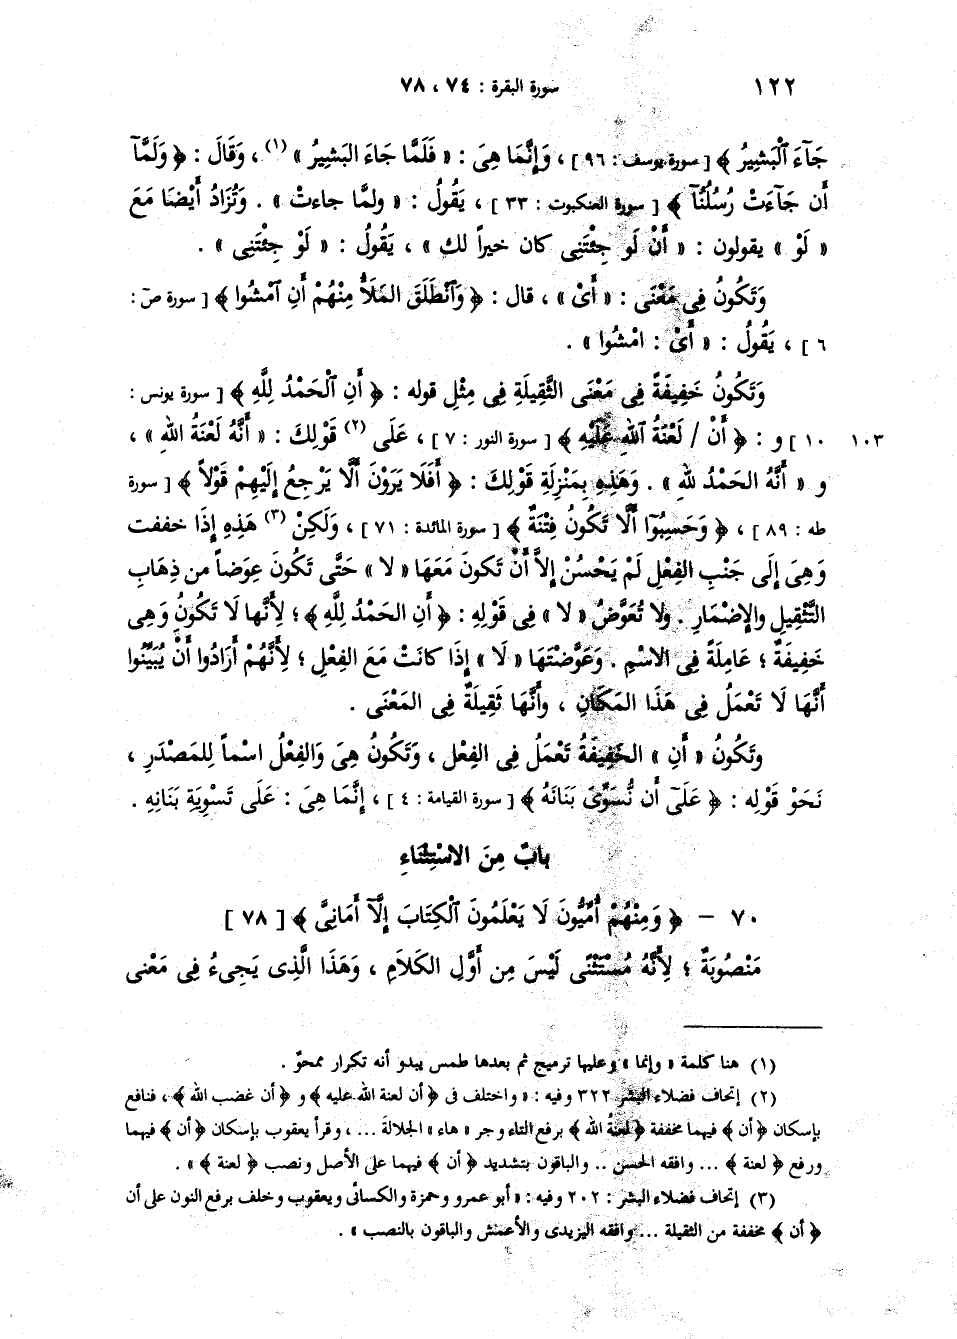 ١٢٢ سورة البقرة : ٧٤ ، ٧٨
جَآءَ ٱلْبَشِيرُ ﴾ [ سورة يوسف : ٩٦ ] ، وَإِنَّمَا هِىَ : « فَلَمَّا جَاءَ البَشِيرُ » (١) ، وَقَالَ : ﴿ وَلَمَّآ
أَن جَآءَتْ رُسُلُنَآ ﴾ [ سورة العنكبوت : ٣٣ ] ، يَقُولُ : « ولمَّا جاءتْ » . وَتُزَادُ أَيْضًا مَعَ
« لَوْ » يقولون : « أَنْ لَو جِئْتَنِى كان خيراً لك » ، يَقُولُ : « لَوْ جِئْتَنِى » .
وَتَكُونُ فِى مَعْنَى : « أَىْ » ، قال : ﴿ وَٱنْطَلَقَ المَلَأُ مِنْهُمْ أَنِ ٱمْشُوا ﴾ [ سورة صۤ :
٦ ] ، يَقُولُ : « أَىْ : امْشُوا » .
وَتَكُونُ خَفِيفَةً فِى مَعْنَى الثَّقِيلَةِ فِى مِثْلِ قوله : ﴿ أَنِ ٱلْحَمْدُ لِلَّهِ ﴾ [ سورة يونس :
١٠ ] و : ﴿ أَنْ / لَعْنَةُ ٱللهِ عَلَيْهِ ﴾ [ سورة النور : ٧ ] ، عَلَى (٢) قَوْلِكَ : « أَنَّهُ لَعْنَةُ اللهِ » ، ١٠٣
و « أَنَّهُ الحَمْدُ للهِ » . وَهَذِهِ بِمَنْزِلَةِ قَوْلِكَ : ﴿ أَفَلَا يَرَوْنَ أَلَّا يَرْجِعُ إِلَيْهِمْ قَوْلاً ﴾ [ سورة
طه : ٨٩ ] ، ﴿ وَحَسِبُوٓا أَلَّا تَكُونُ فِتْنَةٌ ﴾ [ سورة المائدة : ٧١ ] ، وَلَكِنْ (٣) هَذِهِ إِذَا خففت
وَهِىَ إِلَى جَنْبِ الفِعْلِ لَمْ يَحْسُنْ إِلاَّ أَنْ تَكونَ مَعَهَا « لا » حَتَّى تَكُونَ عِوَضاً من ذِهَابِ
التَّثْقِيلِ والإِضْمَارِ . ولا تُعَوَّضُ « لا » فِى قَوْلِهِ : ﴿ أَنِ الحَمْدُ لِلَّهِ ﴾ ؛ لِأَنَّها لَا تَكُونُ وَهِى
خَفِيفَةٌ ؛ عَامِلَةً فِى الاسْمِ . وَعَوَّضْتَهَا « لَا » إِذَا كانَتْ مَعَ الفِعْلِ ؛ لِأَنَّهُمْ أَرَادُوا أَنْ يُبَيِّنُوا
أَنَّهَا لَا تَعْمَلُ فِى هَذَا المَكَانِ ، وأَنَّهَا ثَقِيلَةٌ فِى المَعْنَى .
وتَكُونُ « أَنِ » الخَفِيفَةُ تَعْمَلُ فِى الفِعْل ، وَتَكُونُ هِىَ وَالفِعْلُ اسْماً لِلمَصْدَرِ ،
نَحَوْ قَوْلِه : ﴿ عَلَىٓ أَن نُّسَوِّىَ بَنَانَهُ ﴾ [ سورة القيامة : ٤ ] ، إِنَّمَا هِىَ : عَلَى تَسْوِيَةِ بَنَانِهِ .
بابٌ مِنَ الاسْتِثْنَاءِ
٧٠ – ﴿ وَمِنْهُمْ أُمِّيُّونَ لَا يَعْلَمُونَ ٱلْكِتَابَ إِلَّآ أَمَانِىَّ ﴾ [ ٧٨ ]
مَنْصُوبَةٌ ؛ لِأَنَّهُ مُسْتَثْنًى لَيْسَ مِن أَوَّلِ الكَلَامِ ، وَهَذَا الَّذِى يَجِىءُ فِى مَعْنى
(١) هنا كلمة « وإنما » وعليها ترميج ثم بعدها طمس يبدو أنه تكرار ممحوّ .
(٢) إتحاف فضلاء البشر ٣٢٢ وفيه : « واختلف فى ﴿ أن لعنة الله عليه ﴾ و ﴿ أن غضب الله ﴾ ، فنافع
بإسكان ﴿ أن ﴾ فيهما مخففة ﴿ لعنةُ الله ﴾ برفع التاء وجر « هاء » الجلالة ... ، وقرأ يعقوب بإسكان ﴿ أن ﴾ فيهما
ورفع ﴿ لعنة ﴾ ... وافقه الحسن .. والباقون بتشديد ﴿ أن ﴾ فيهما على الأصل ونصب ﴿ لعنة ﴾ » .
(٣) إتحاف فضلاء البشر : ٢٠٢ وفيه : « أبو عمرو وحمزة والكسائى ويعقوب وخلف برفع النون على أن
﴿ أن ﴾ مخففة من الثقيلة ... وافقه اليزيدى والأعمش والباقون بالنصب » .